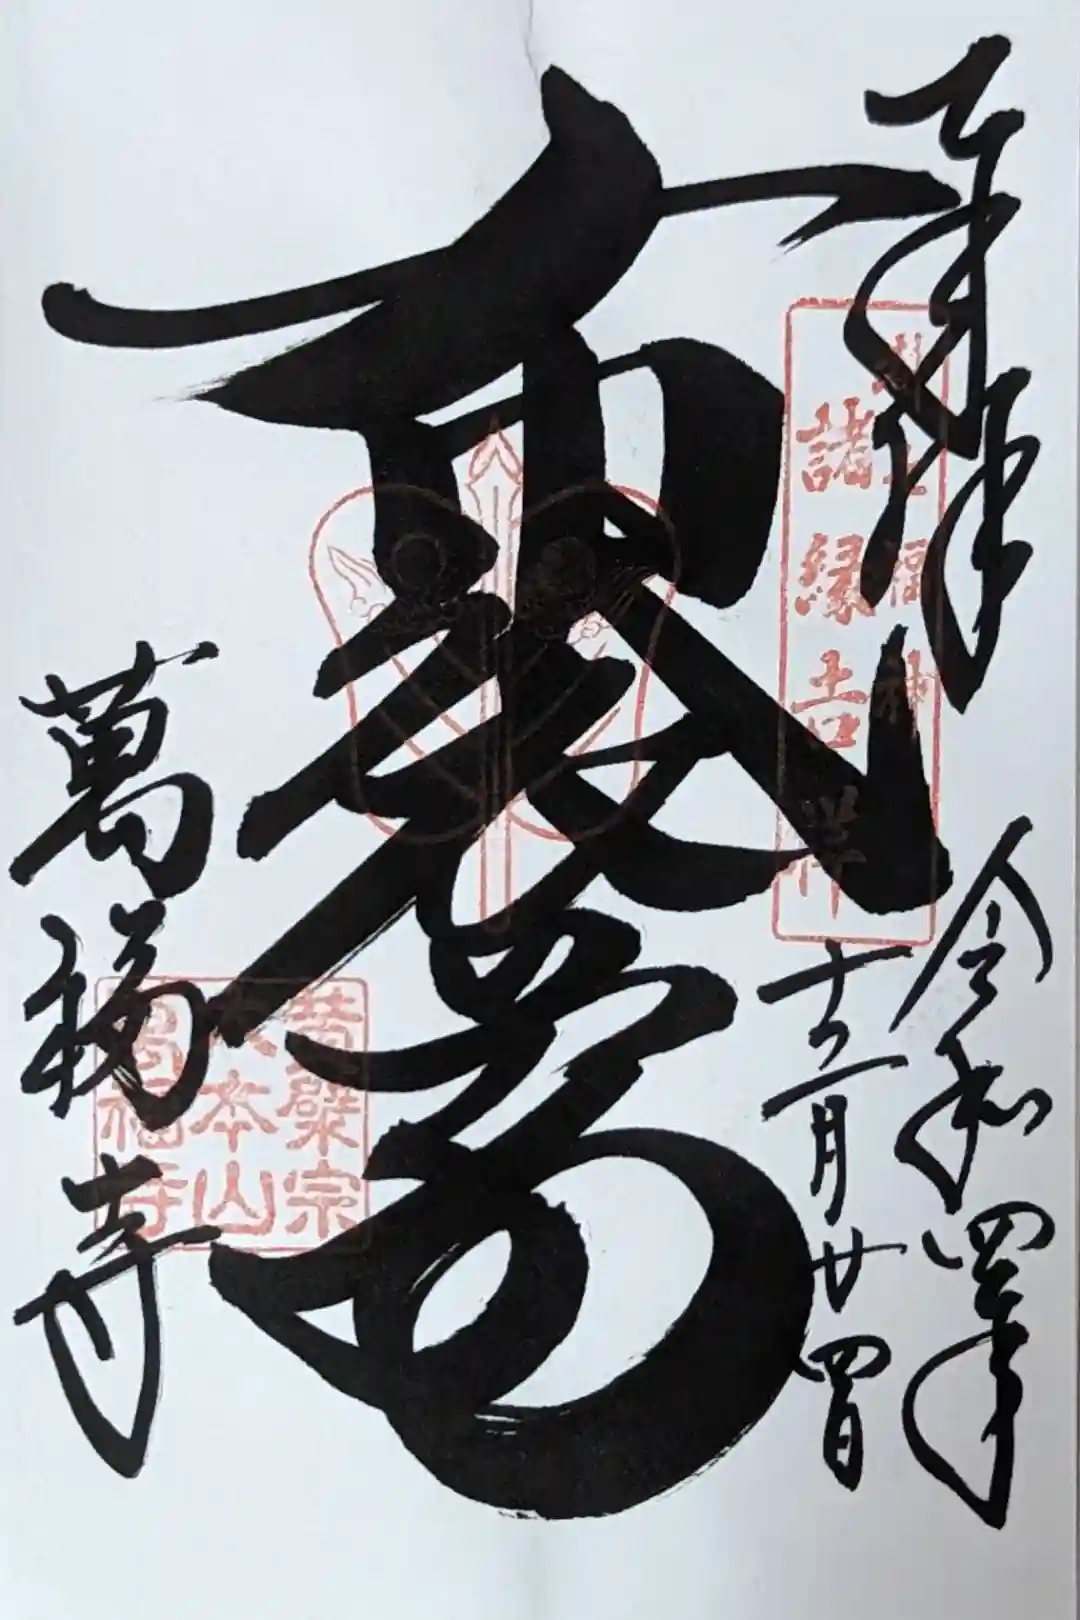 奉拝
令和四年
十二月廿四日
七福神
諸縁吉祥
布袋尊
黄檗宗
大本山
萬福寺
萬福寺